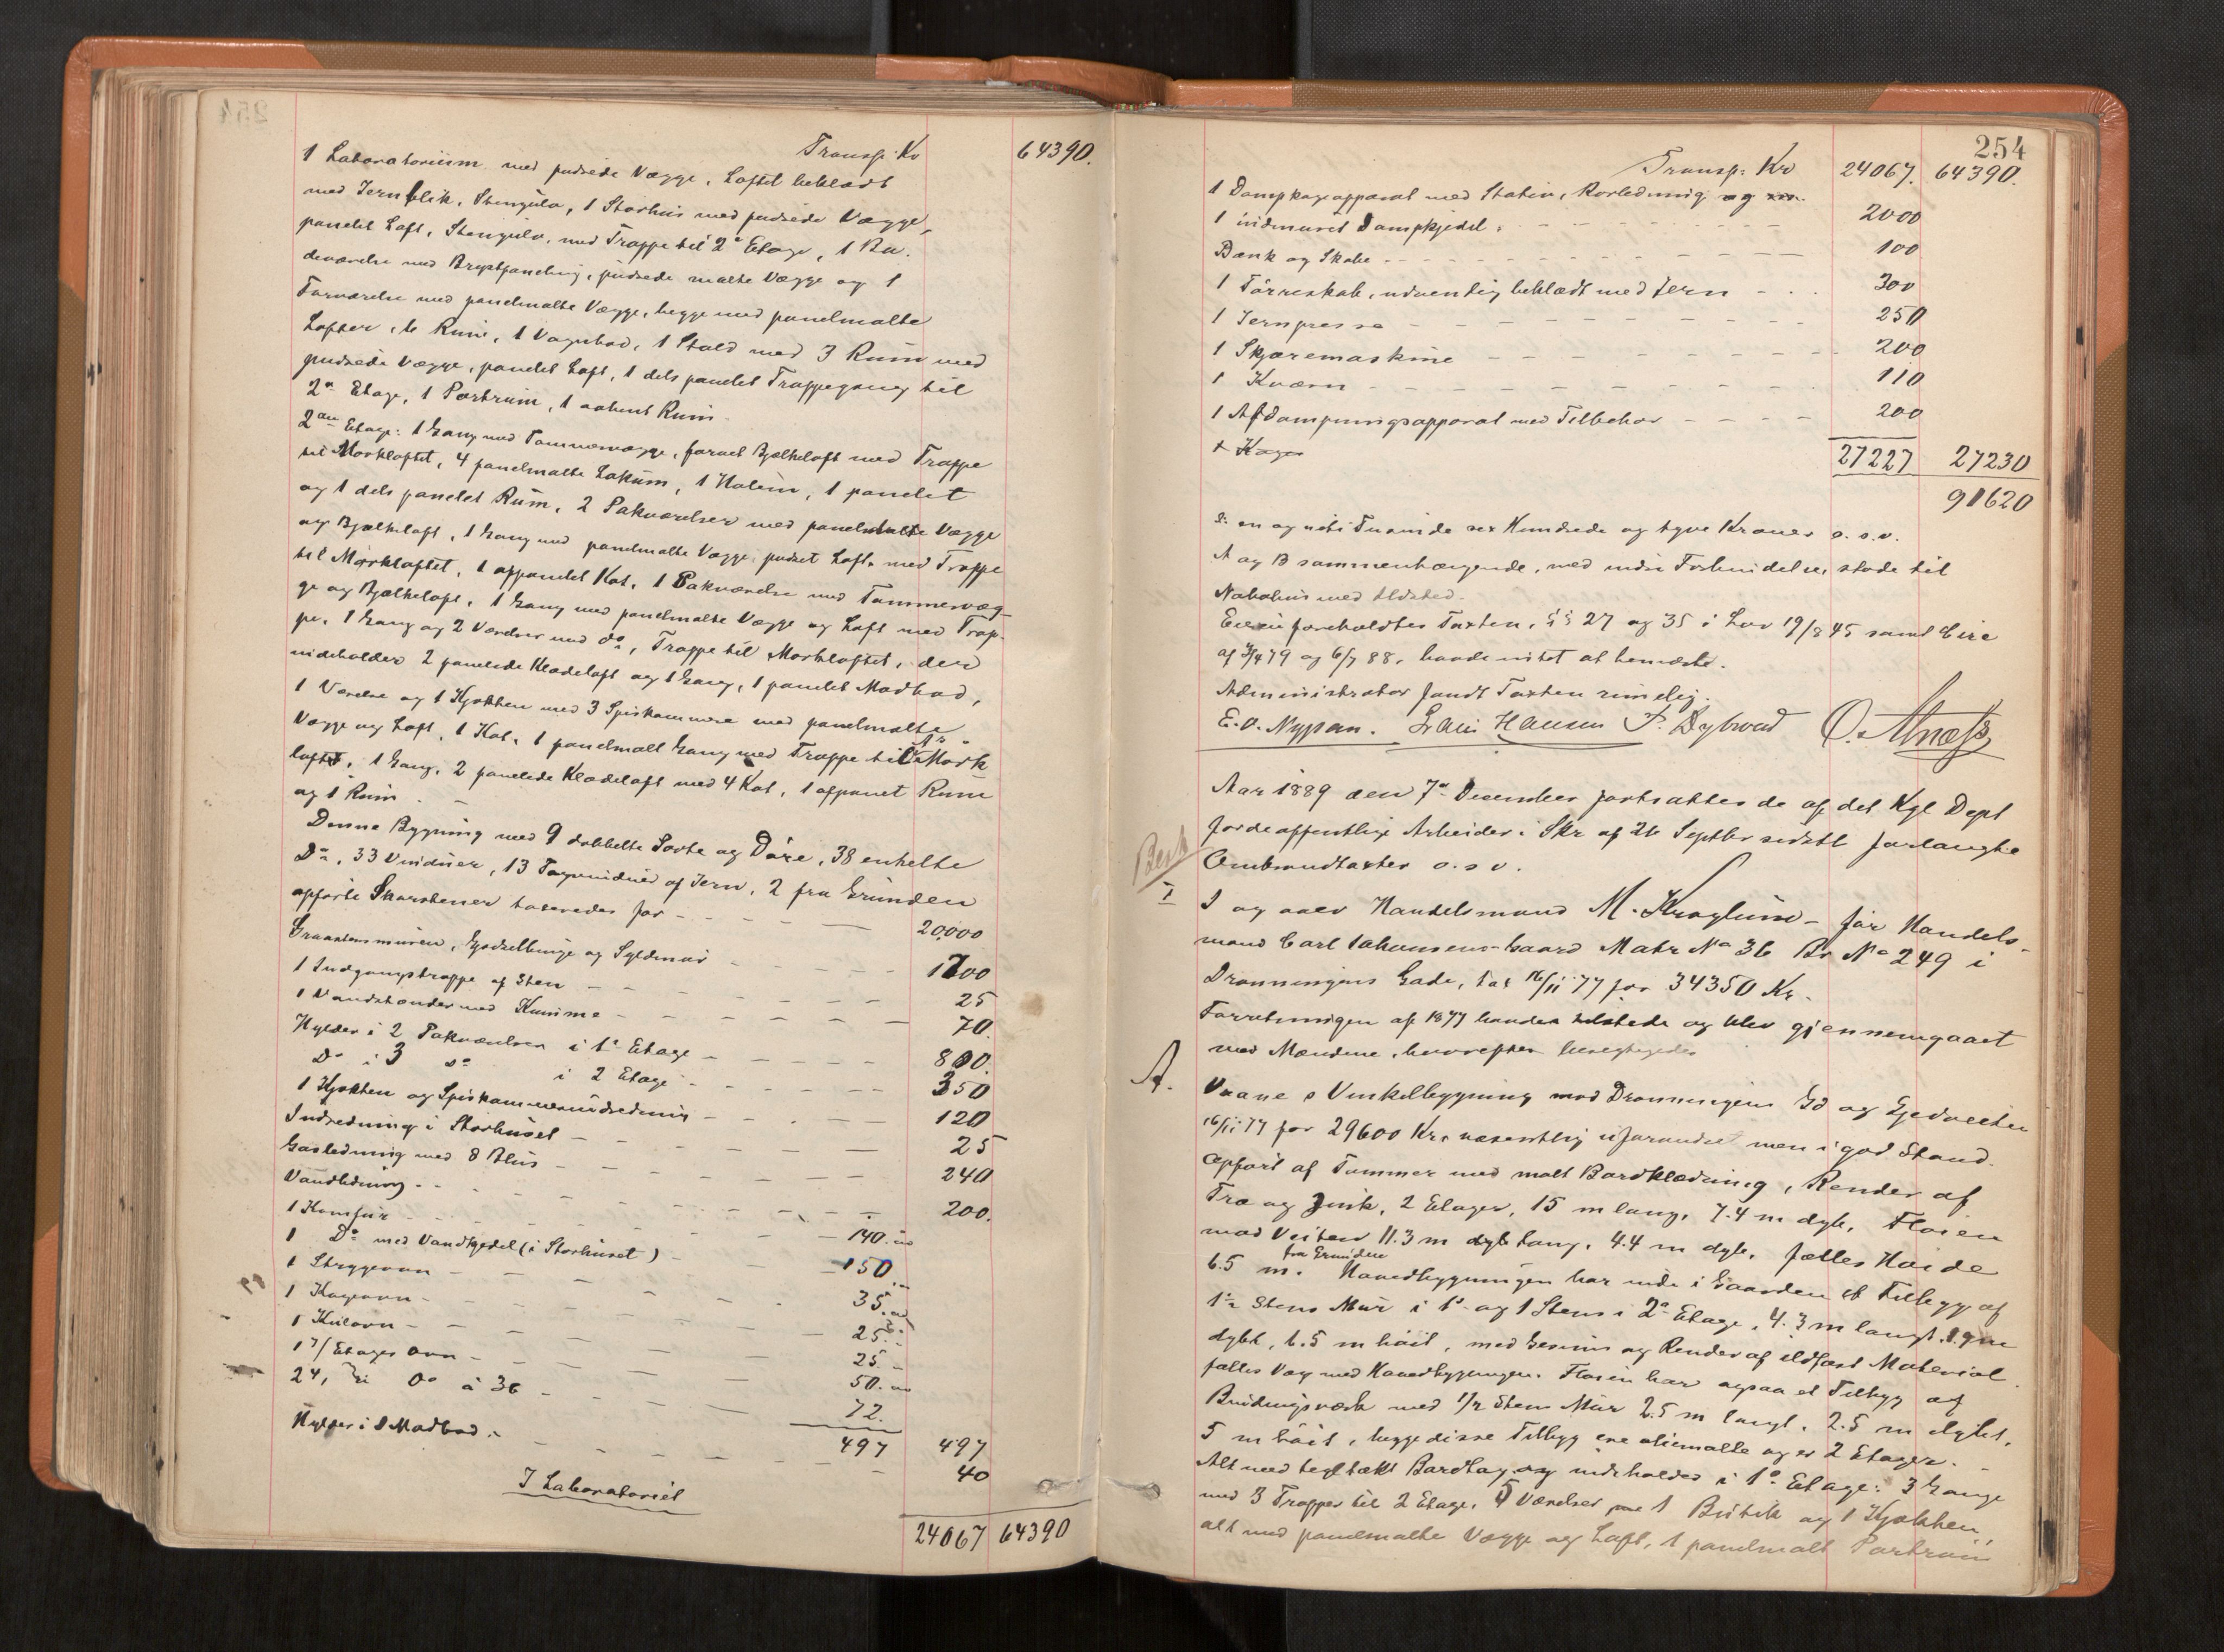 Transp. Kr 64390.
1 Laboratorium med pudsede Vægge, Loftet beklædt
med Jernblik, Stengulv, 1 Storhus med pudsede Vægge,
panelet Loft, Stengulv, med Trappe til 2a Etage, 1 Ba-
deværelse med Brystpaneling, pudsede malte Vægge og 1
Forværelse med panelmalte Vægge, begge med panelmalte
Lofter, 6 Rum, 1 Vognbod, 1 Stald med 3 Rum med
pudsede Vægge, panelet Loft, 1 dels panelet Trappegang til
2a Etage, 1 Portrum, 1 aabent Rum.
2den Etage: 1 Gang med Tømmervægge, Bjelkeloft med Trappe
til Mørkloftet, 4 panelmalte 1 panelet
og 1 dels panelet Rum, 2 Pakværelser med panelmalte Vægge
og Bjelkeloft, 1 Gang med panelmalte Vægge pudset Loft, med Trappe
til Mørkloftet, 1 afpanelet Kot, 1 Pakværelse med Tømmervæg-
ge og Bjelkeloft, 1 Gang med panelmalte Vægge og Loft med Trap-
pe, 1 Gang og 2 Værelser med do, Trappe til Mørkloftet, der
indeholder 2 panelede Klædeloft og 1 Gang, 1 panelet Madbod,
1 Værelse og 1 Kjøkken med 3 Spiskammere med panelmalte
Vægge og Loft, 1 Kot, 1 panelmalt Gang med Trappe til Mørk
loftet, 1 Gang, 2 panelede Klædeloft med 4 Kot, 1 afpanet Rum
og 1 Rum.
Denne Bygning med 9 dobbelte Porte og Døre, 38 enkelte
Do, 33 Vinduer, 13 Tagvinduer af Jern, 2 fra Grunden
opførte Skorstener taxeredes for - - - 20,000
Graastensmuren, og Syldmur - - - 1700
1 Indgangstrappe af Sten - - - 25
1 Vandstander med Kumme - - - 70.
Hylder i 2 Pakværelser i 1e Etage - - - 800.
Do i 3 do i 2 Etage - - - 350
1 Kjøkken og Spiskammerindredning - - - 120
Indredning i Storhuset - - - 25
Gasledning med 8 Blus - - - 240
Vandledning - - - 200.
1 Komfur - - - 140.
1 Do med Vandkjedel (i Storhuset) - 150
1 Strygeovn - - - 35.
1 Kogeovn - - - 25.
1 Kulovn - - - 25.
1 Etages Ovn - - - 50.
2 do à 36 - - - 72.
497 497
Hylder i 1 Madbod - - - 40
I Laboratoriet
24067 64390
254
Transp: Kr 24067. 64390.
1 Dampkogeapparat med Stativ, Rørledning og
1 indmuret Dampkjedel - - - 2000
Bænk og Skabe - - - 100
1 Tørreskab, udvendig beklædt med Jern - - - 300
1 Jernpresse - - - 250
1 Skjæremaskine - - - 200
1 Kværn - - - 110
1 Afdampningsapparat med Tilbehør - - - 200
27227 27230
91620
en og niti Tusinde sex Hundrede og tyve Kroner o.s.v.
A og B sammenhængende, med indre Forbindelse, støde til
Nabohus med Ildsted.
foreholdtes Taxten, §§ 27 og 35 i Lov 19/8 45 samt Circ
af 3/4 79 og 6/7 88, havde intet at bemærke.
Administrator fandt Taxten rimelig.
E. O. Nypan. Hansen P. Dybwad O. Alnæs
Aar 1889 den 7de December fortsattes de af det Kgl Dept
for de offentlige Arbeider i Skr af 26 Septbr sidstl forlangte
Besk
Ombrandtaxter o.s.v.
I
I og over Handelsmand M. Kroglund - før Handels-
mand Carl Johansens - Gaard Matr No 36 Br No 249 i
Dronningens Gade, tax 16/11 77 for 34350 Kr.
Forretningen af 1877 havdes tilstede og blev gjennemgaaet
med Mændene, hvorefter besigtigedes
A.
Vaane o Vinkelbygning mod Dronningens Gd og
16/11 77 for 29600 Kr. væsentlig uforandret men i god Stand.
Opført af Tømmer med malt Bordklædning, Render af
Træ og Zink, 2 Etager, 15 m lang, 7.4 m dyb, Fløien
mod Veiten 11.3 m lang, 4.4 m dyb, fælles Høide
6.5 m. fra Grunden Hovedbygningen har inde i Gaarden et Tilbygg af
1½ Stens Mur i 1e og 1 Stens i 2a Etage, 4.3 m langt 1.9 m
dybt, 6.5 m høit, med Gesims og Render af ildfast Material
fælles Væg med Hovedbygningen. Fløien har ogsaa et Tilbygg af
Bindingsværk med 1/2 Stens Mur 2.5 m langt, 2.5 m dybt,
5 m høit, begge disse Tilbygg ere oliemalte og er 2 Etager.
Alt med teglhakt Bordtag og indeholder i 1e Etage: 3 Gange
med 3 Trapper til 2 Etage, 5 Værelser 1 Butik og 1 Kjøkken,
alt med panelmalte Vægge og Loft, 1 panelmalt Portrum